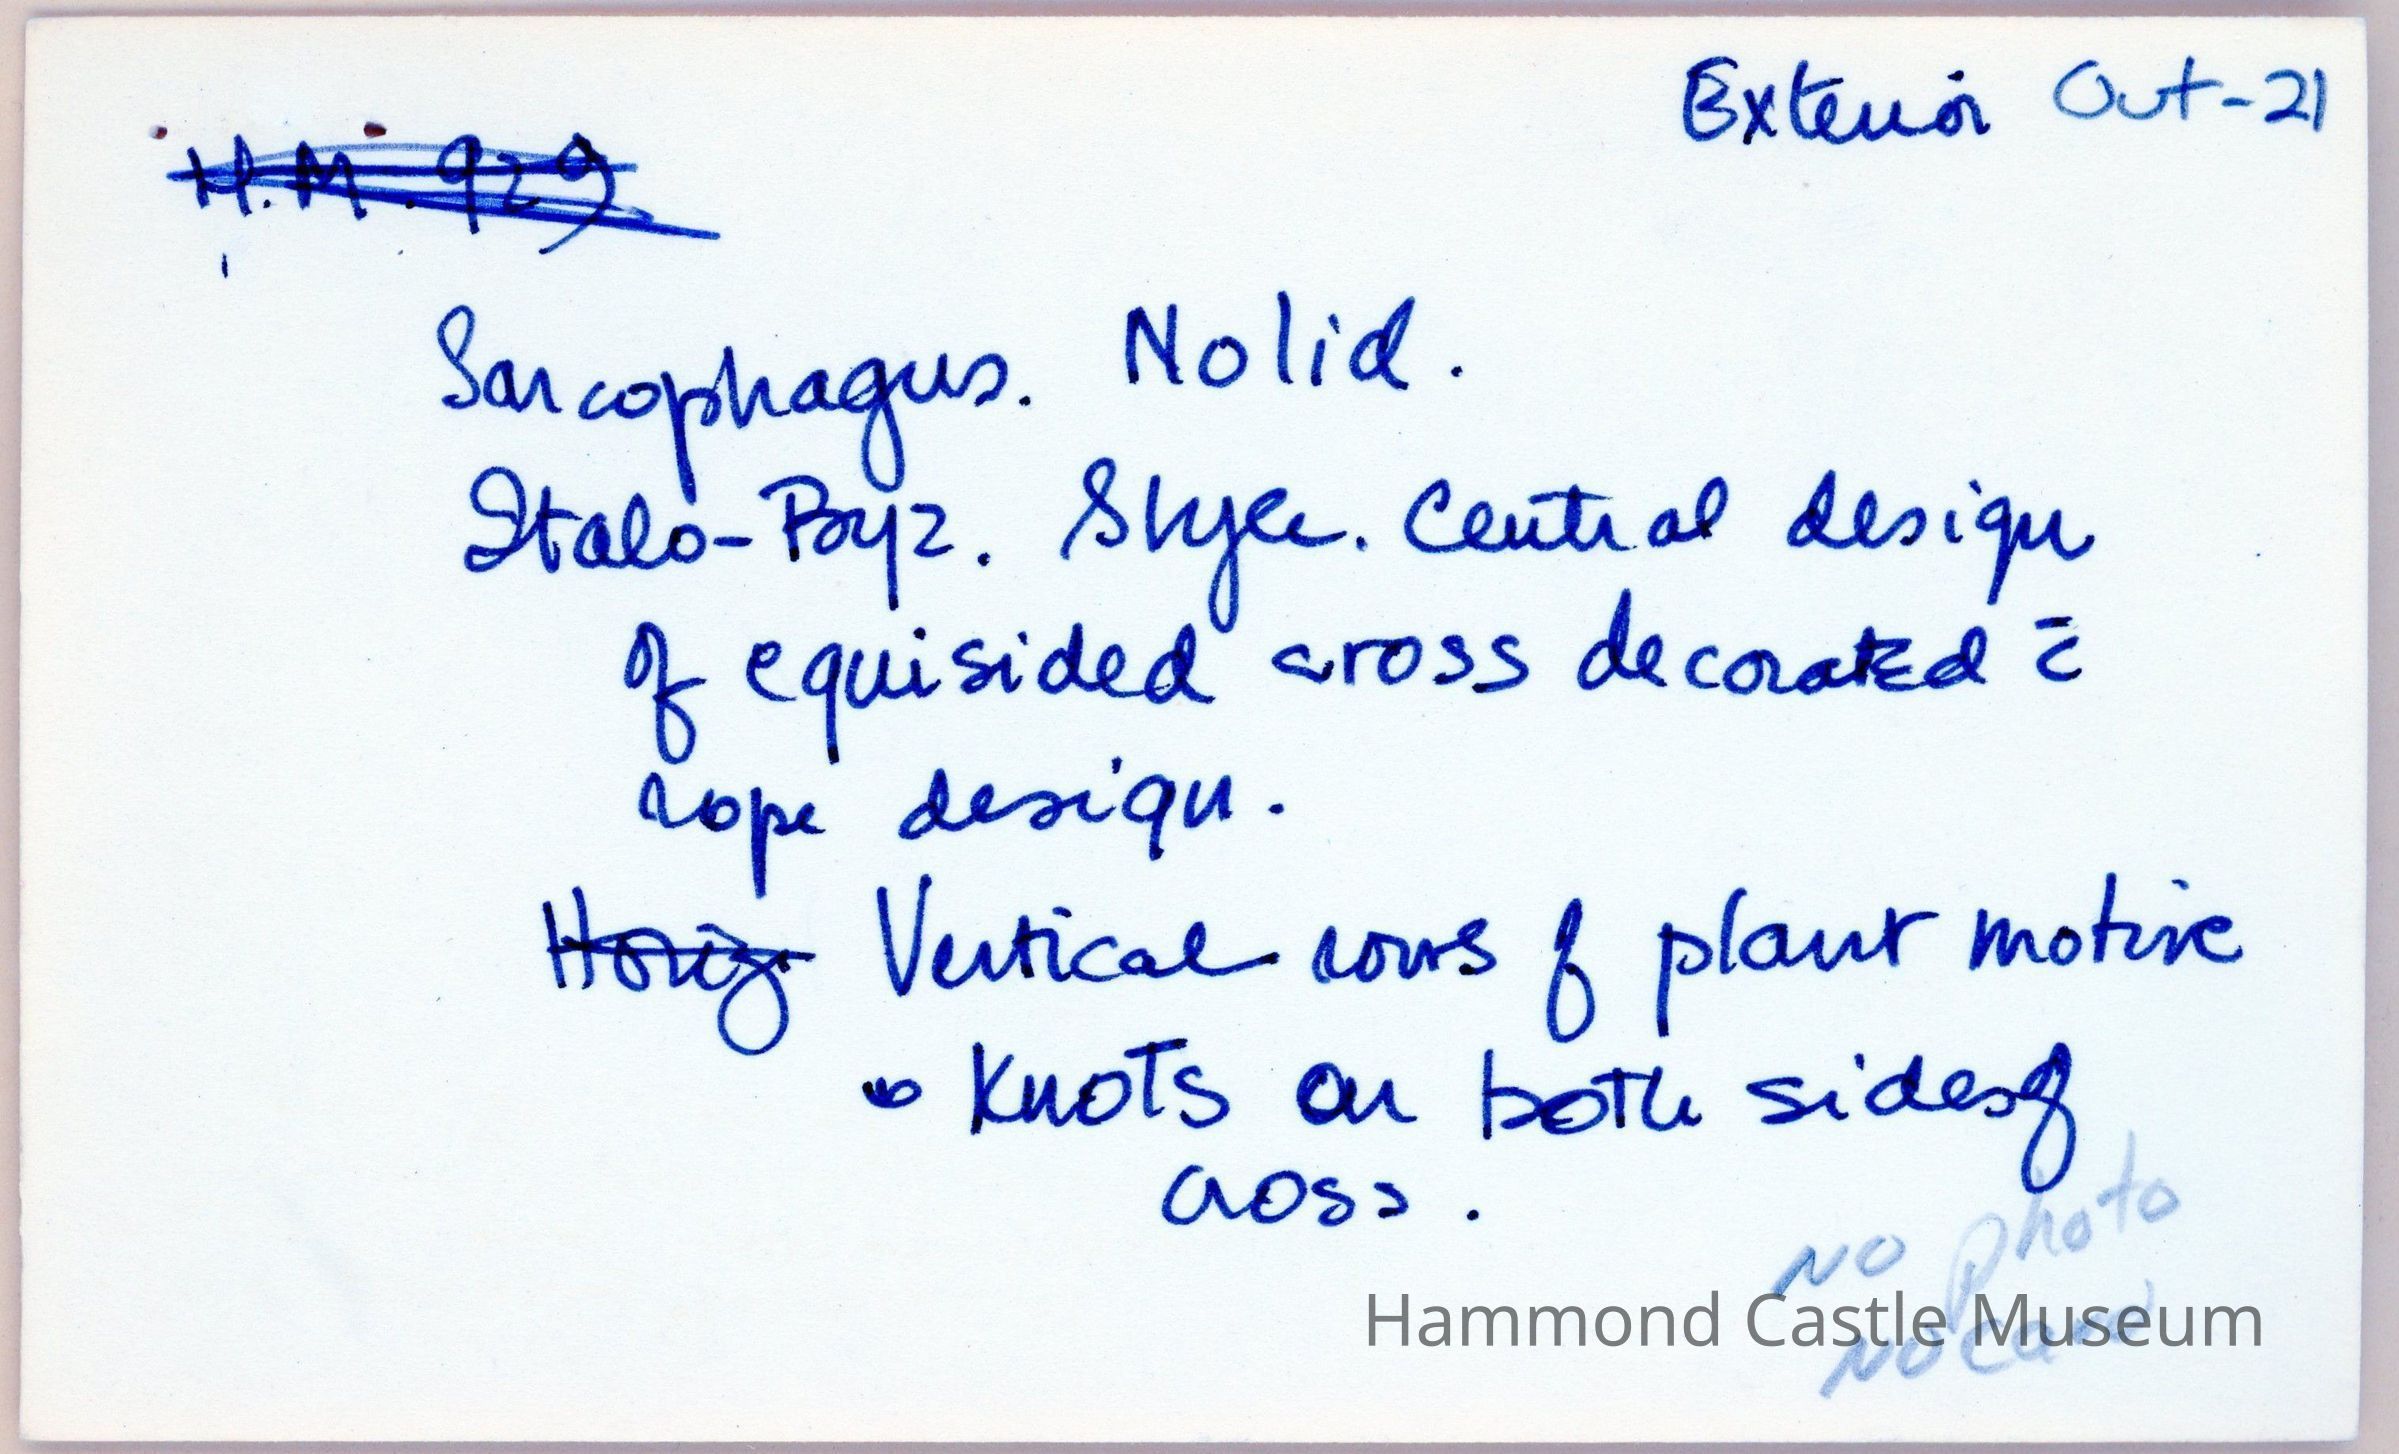 Exterior Out-21
H.M. 929
Sarcophagus. No lid.
Italo-Byz. Style. Central design
of equisided cross decorated c̄
rope design.
Horiz. Vertical rows of plant motive
& Knots on both sides of
cross.
No photo
No card
Hammond Castle Museum